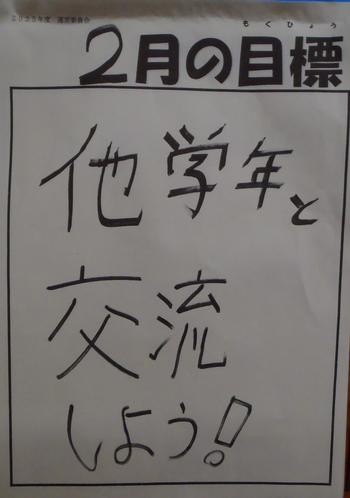 2023年度 運営委員会
もくひょう
2月の目標
他学年と
交流
しよう!